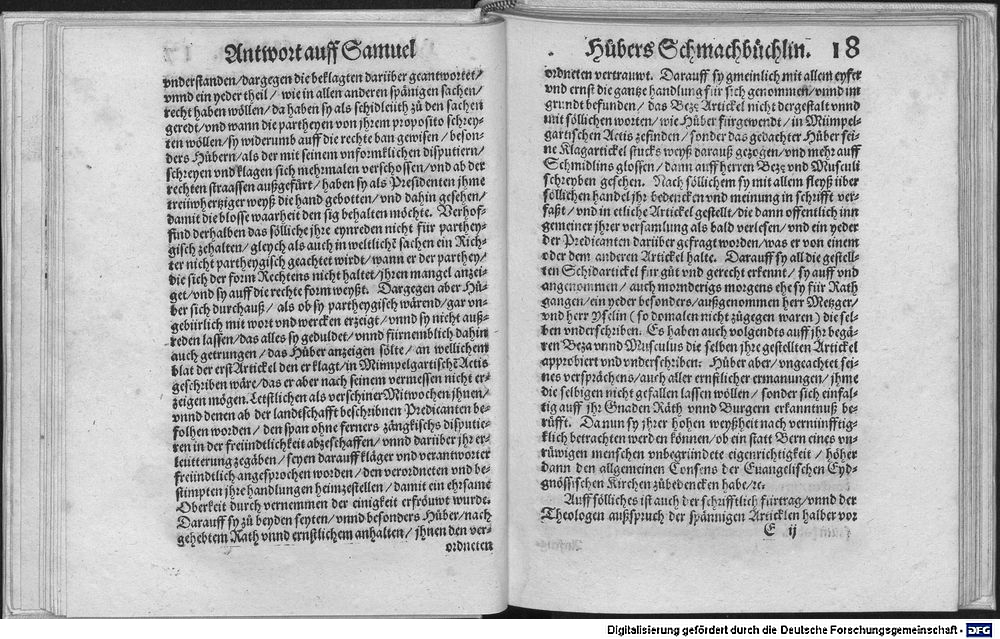 Antwort auff Samuel
vnderstanden/dargegen die beklagten darüber geantwortet/
vnnd ein yeder theil/ wie in allen anderen spänigen sachen/
recht haben wöllen/da haben sy als schidleüth zů den sachen
geredt/vnd wann die partheyen von jhrem proposito schrey-
ten wöllen/sy widerumb auff die rechte ban gewisen/ beson-
ders Hůbern/als der mit seinem vnformklichen disputiern/
schreyen vnd klagen sich mehrmalen verschossen/vnd ab der
rechten straassen außgefürt/ haben sy als Presidenten jhme
treüwhertziger weyß die hand gebotten/ vnd dahin gesehen/
damit die blosse waarheit den sig behalten möchte. Verhof-
find derhalben das söllliche jhre eynreden nicht für parthey-
gisch zehalten/gleych als auch in weltlichẽ sachen ein Rich-
ter nicht partheygisch geachtet wirdt/wann er der parthey/
die sich der form Rechtens nicht haltet/jhren mangel anzei-
get/vnd sy auff die rechte form weyßt. Dargegen aber Hů-
ber sich durchauß/ als ob sy partheygisch wärend/gar vn-
gebürlich mit wort vnd wercken erzeigt/vnnd sy nicht auß-
reden lassen/das alles sy geduldet/vnnd fürnemblich dahin
auch getrungen/das Hůber anzeigen sölte/ an wellichem
blat der erst Artickel den er klagt/in Mümpelgartischẽ Actis
geschriben wäre/das er aber nach seinem vermessen nicht er-
zeigen mögen. Letstlichen als verschiner Mitwochen jhnen/
vnnd denen ab der landtschafft beschribnen Predicanten be-
folhen worden/ den span ohne ferners zångkischs disputie-
ren in der freündtlichkeit abzeschaffen/ vnnd darüber jhr er-
leütterung zegäben/ seyen darauff kläger vnd verantworter
freündtlich angesprochen worden/ den verordneten vnd be-
stimpten jhre handlungen heimzestellen/damit ein ehrsame
Oberkeit durch vernemmen der einigkeit erfröuwt wurde.
Darauff sy zů beyden seyten/ vnnd besonders Hůber/nach
gehebtem Rath vnnd ernstlichem anhalten/ jhnen den ver-
ordneten
Hůbers Schmachbüchlin. 18
ordneten vertrauwt. Darauff sy gmeinlich mit allem eyfer
vnd ernst die gantze handlung für sich genommen/vnnd im
grundt befunden/ das Beze Artickel nicht dergestalt vnnd
mit söllichen worten/ wie Hůber fürgewendt/ in Mümpel-
gartischen Actis zefinden/ sonder das gedachter Hůber sei-
ne Klagartickel stucks weyß darauß gezogen/vnd mehr auff
Schmidlins glossen/ dann auff herren Beze vnd Musculi
schreyben gesehen. Nach söllichem sy mit allem fleyß über
söllichen handel jhr bedencken vnd meinung in schrifft ver-
faßt/ vnd in etliche Artickel gestellt/die dann offentlich inn
gemeiner jhrer versamlung als bald verlesen/ vnd ein yeder
der Predicanten darüber gefragt worden/was er von einem
oder dem anderen Artickel halte. Darauff sy all die gestell-
ten Schidartickel für gůt vnd gerecht erkennt/ sy auff vnd
angenommen/ auch mornderigs morgens ehe sy für Rath
gangen/ein yeder besonders/außgenommen herr Metzger/
vnd herr yselin (so domalen nicht zůgegen waren) die sel-
ben vnderschriben. Es haben auch volgendts auff jhr begä-
ren Beza vnnd Musculus die selben jhre gestellten Artickel
approbiert vnd vnderschriben. Hůber aber/ vngeachtet sei-
nes versprächens/auch aller ernstlicher ermanungen/ jhme
die selbigen nicht gefallen lassen wöllen/ sonder sich einfal-
tig auff jhr Gnaden Räth vnnd Burgern erkanntnuß be-
růfft. Da nun sy jhrer hohen weyßheit nach vernünfftig-
klich betrachten werden können/ ob ein statt Bern eines vn-
růwigen menschen vnbegründete eigenrichtigkeit/ höher
dann den allgemeinen Consens der Euangelischen Eyd-
gnössischen Kirchen zůbedencken habe/ꝛc.
Auff söllliches ist auch der schrifftlich fürtrag/vnnd der
Theologen außspruch der spännigen Articklen halber vor
E ij
Digitalisierung gefördert durch die Deutsche Forschungsgemeinschaft - DFG